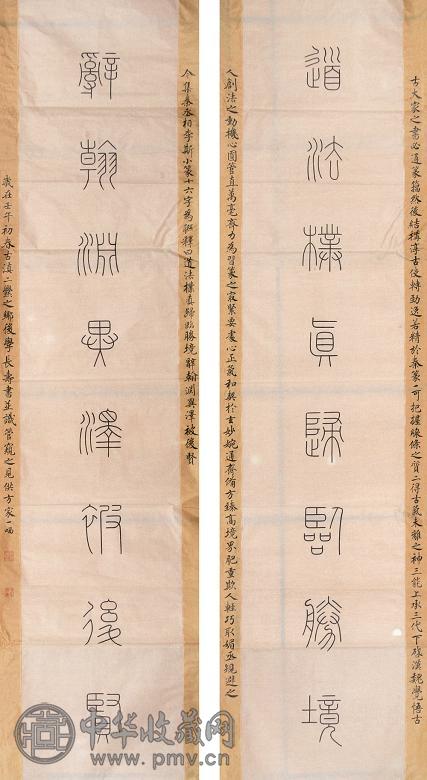 古大家之書必通篆籀然後結構淳古使轉勁逸若精於秦篆一可把握線條之質二得古氣未離之神三能上承三代下啟漢魏覺悟古
道法樸真歸臨勝境
人創法之動機心圓管直萬毫齊力為習篆之最緊要處心正氣和契於玄妙婉通齊備方臻高境界肥重欺人輕巧取媚丞規避之
今集秦丞相李斯小篆十六字為聯釋曰道法樸真歸臨勝境辭翰淵異澤被後賢
辭翰淵異澤被後賢
歲在壬午初春古滇二爨之鄉後學長壽書並識管窺之見供方家一哂
中华收藏网
www.pmv.cn
中华收藏网
www.pmv.cn